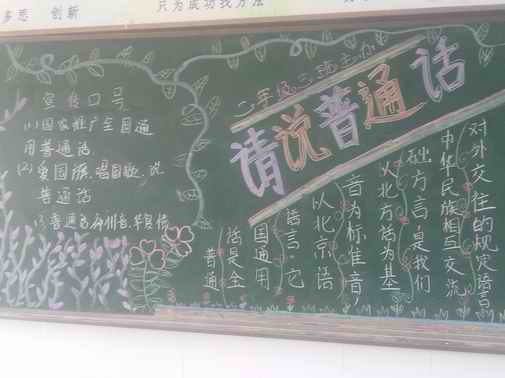 多思 创新
只为成功找方法
宣传口号
(1) 国家推广全国通
用普通话
(2) 爱国旗、唱国歌、说
普通话
普通话 神州音、华夏情
请说普通话
普通
话是全
国通用
语言,它
以北京语
音为标准音,
以北方话为基
础方言,是我们
中华民族相互交流
对外交往的规定语言